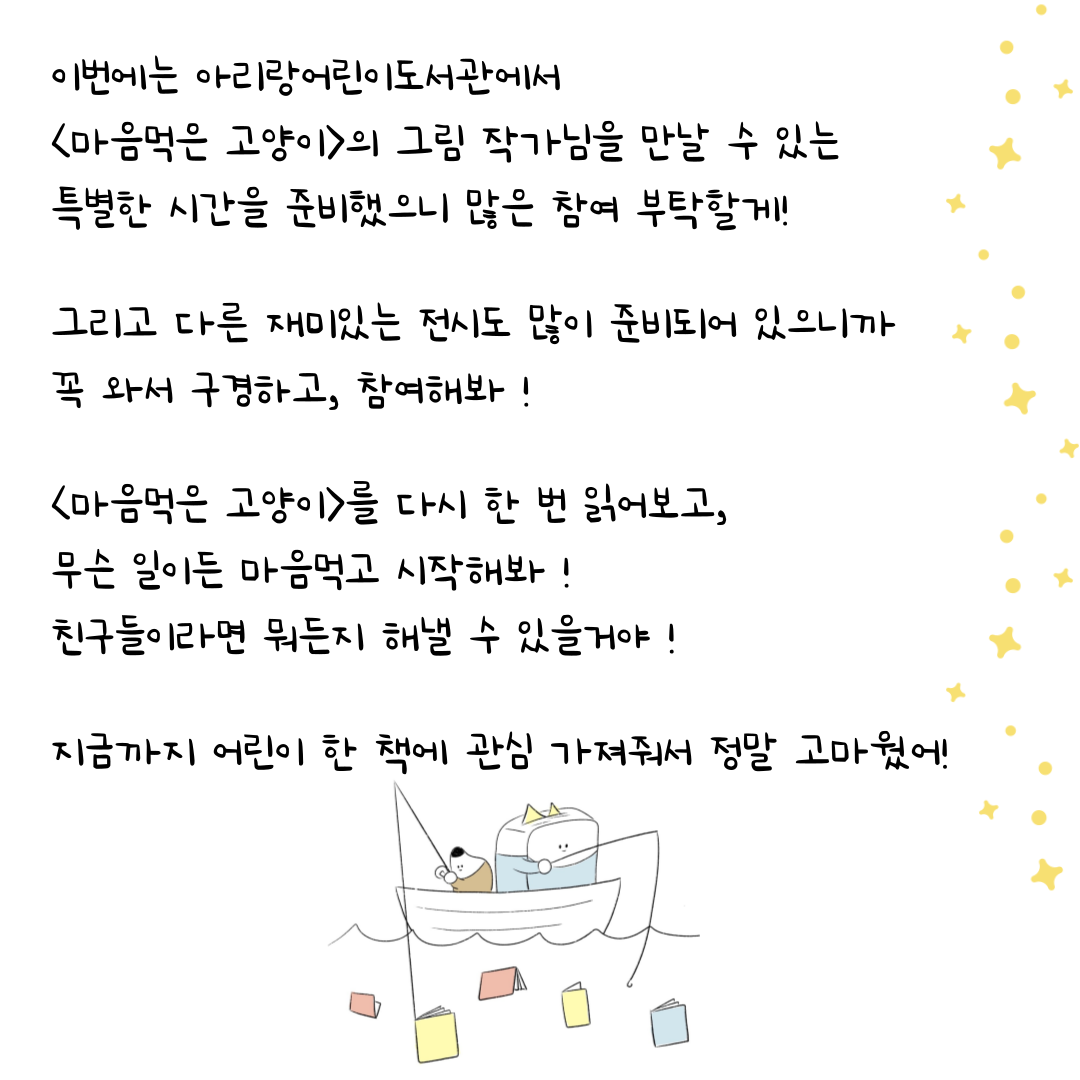 이번에는 아리랑어린이도서관에서
<마음먹은 고양이>의 그림 작가님을 만날 수 있는
특별한 시간을 준비했으니 많은 참여 부탁할게!
그리고 다른 재미있는 전시도 많이 준비되어 있으니까
꼭 와서 구경하고, 참여해봐 !
<마음먹은 고양이>를 다시 한 번 읽어보고,
무슨 일이든 마음먹고 시작해봐 !
친구들이라면 뭐든지 해낼 수 있을거야 !
지금까지 어린이 한 책에 관심 가져줘서 정말 고마웠어!